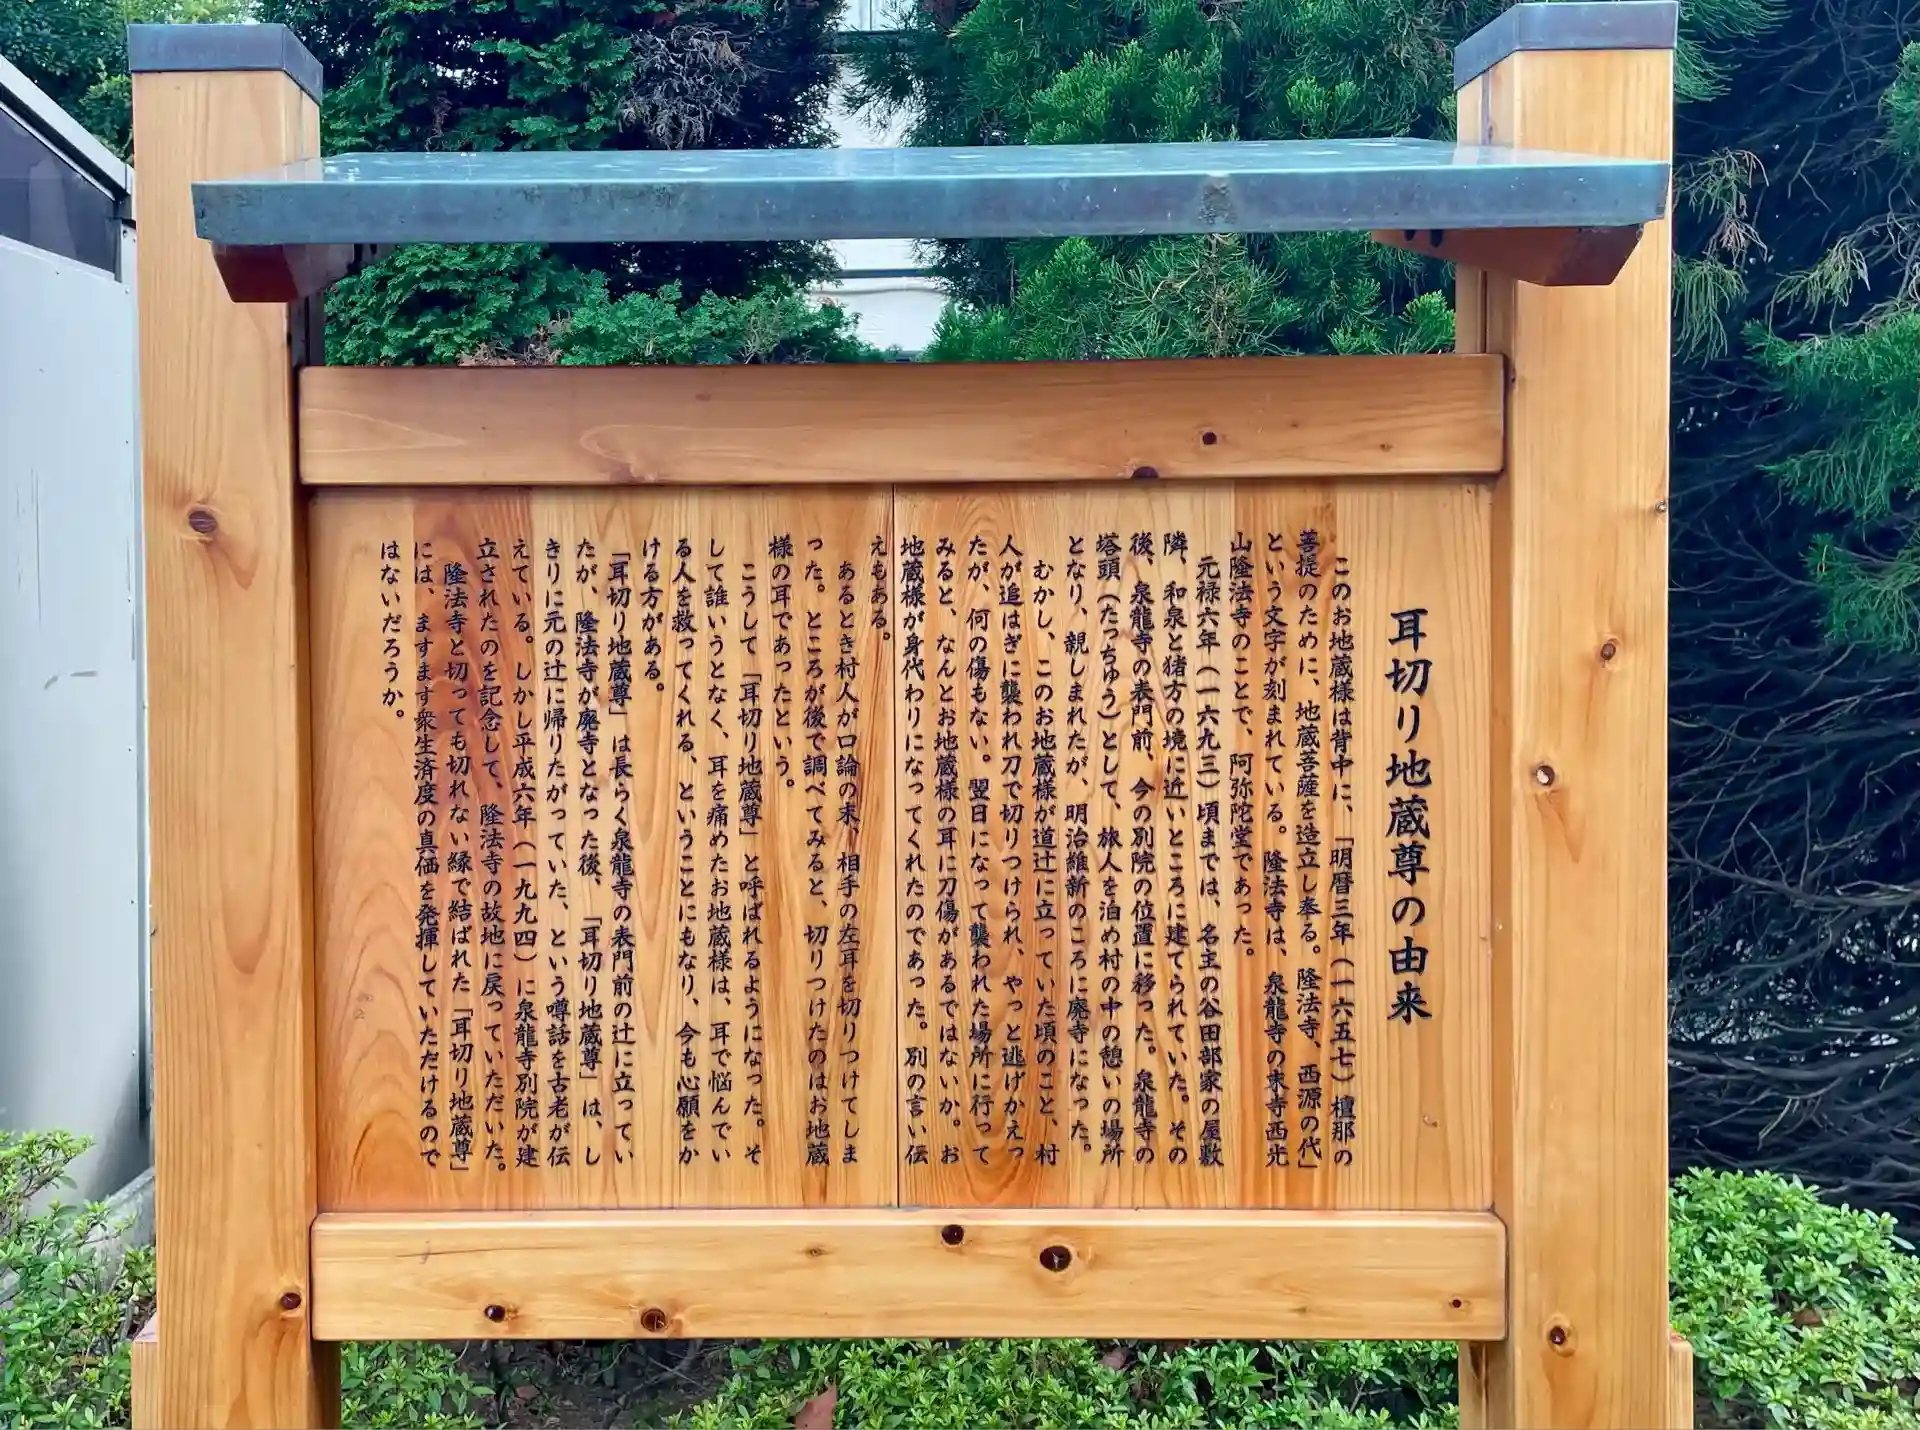 耳切り地蔵尊の由来
このお地蔵様は背中に、「明暦三年(一六五七)檀那の
菩提のために、地蔵菩薩を造立し奉る。隆法寺、西源の代」
という文字が刻まれている。隆法寺は、泉龍寺の末寺西光
山隆法寺のことで、阿弥陀堂であった。
元禄六年(一六九三)頃までは、名主の谷田部家の屋敷
隣、和泉と猪方の境に近いところに建てられていた。その
後、泉龍寺の表門前、今の別院の位置に移った。泉龍寺の
塔頭(たっちゅう)として、旅人を泊め村の中の憩いの場所
となり、親しまれたが、明治維新のころに廃寺になった。
むかし、このお地蔵様が道辻に立っていた頃のこと、村
人が追はぎに襲われ刀で切りつけられ、やっと逃げかえっ
たが、何の傷もない。翌日になって襲われた場所に行って
みると、なんとお地蔵様の耳に刀傷があるではないか。お
地蔵様が身代わりになってくれたのであった。別の言い伝
えもある。
あるとき村人が口論の末、相手の左耳を切りつけてしま
った。ところが後で調べてみると、切りつけたのはお地蔵
様の耳であったという。
こうして「耳切り地蔵尊」と呼ばれるようになった。そ
して誰いうとなく、耳を痛めたお地蔵様は、耳で悩んでい
る人を救ってくれる、ということにもなり、今も心願をか
ける方がある。
「耳切り地蔵尊」は長らく泉龍寺の表門前の辻に立ってい
たが、隆法寺が廃寺となった後、「耳切り地蔵尊」は、し
きりに元の辻に帰りたがっていた、という噂話を古老が伝
えている。しかし平成六年(一九九四)に泉龍寺別院が建
立されたのを記念して、隆法寺の故地に戻っていただいた。
隆法寺と切っても切れない縁で結ばれた「耳切り地蔵尊」
には、ますます衆生済度の真価を発揮していただけるので
はないだろうか。